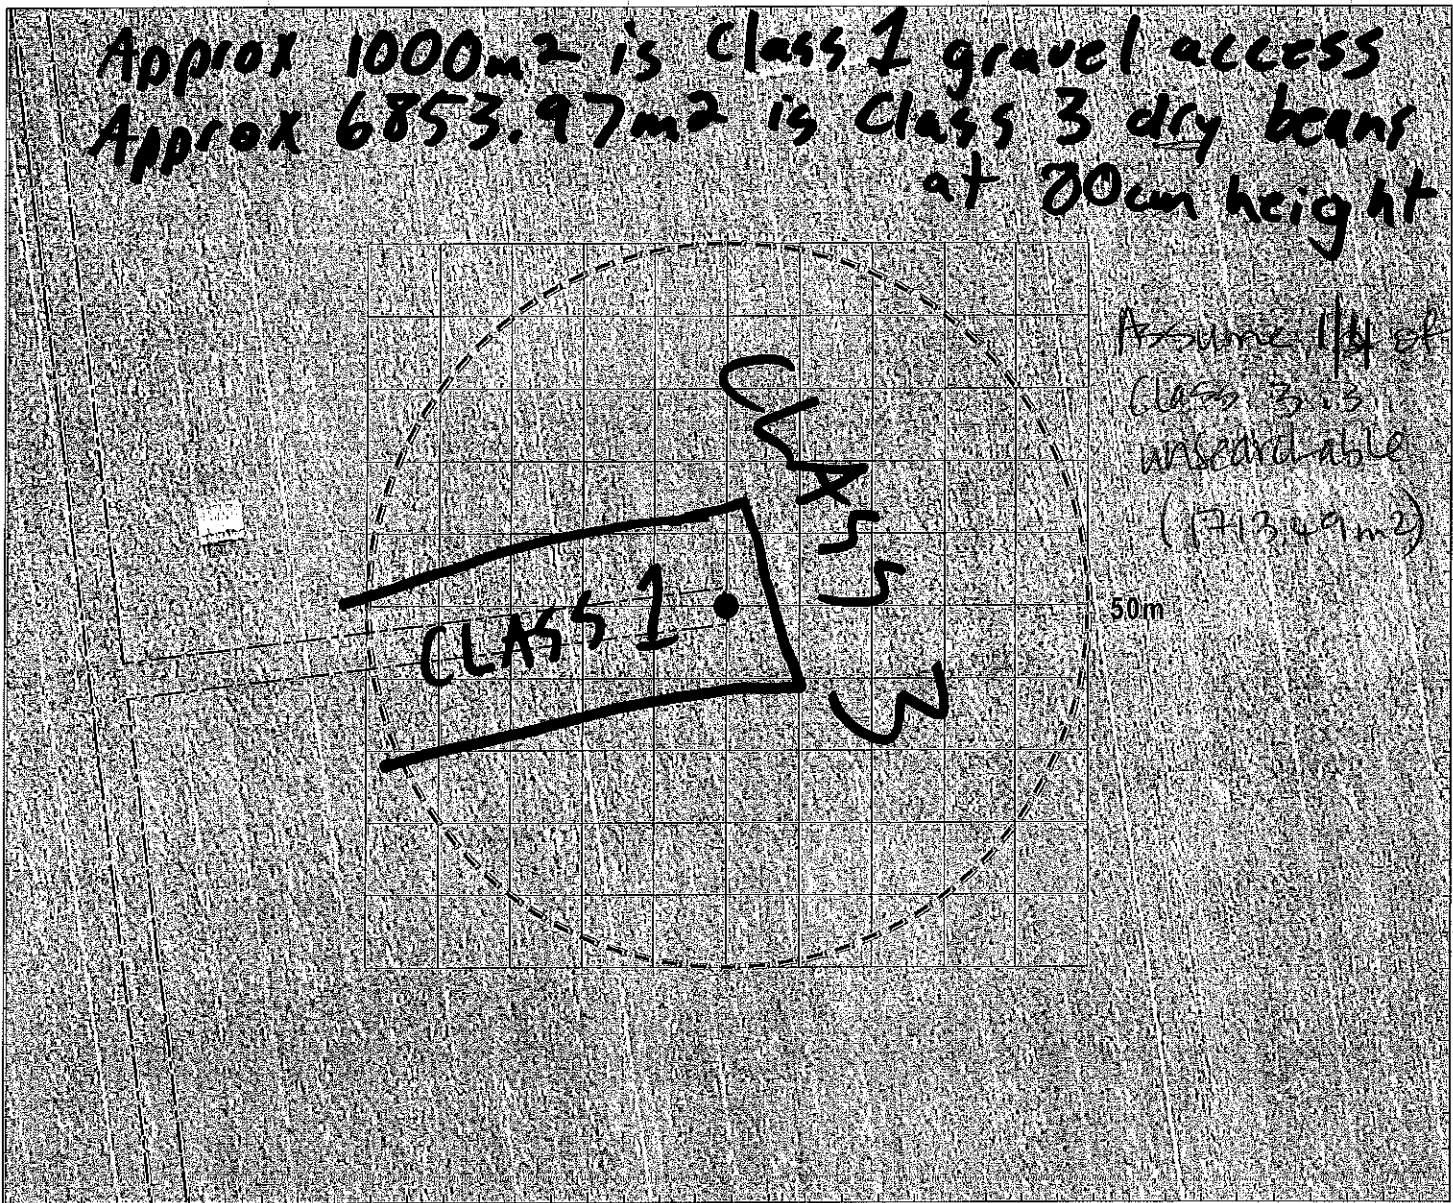 Approx 1000m2 is Class 1 gravel access
Approx 6853.97m2 is Class 3 dry beans
at 30cm height
Assume 1/4 of
Class 3 is
unsearchable
(1713.49m2)
CLASS 3
CLASS 1
50m